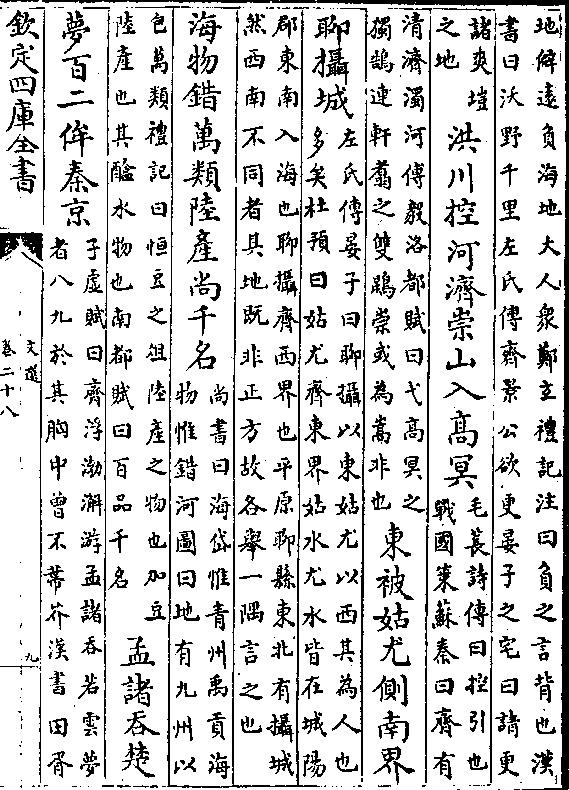 地僻遠負海地大人衆鄭玄禮記注曰負之言背也漢
書曰沃野千里左氏傳齊景公欲更晏子之宅曰請更
諸爽塏
之地
洪川控河濟崇山入高冥
毛萇詩傳曰控引也
戰國策蘇秦曰齊有
清濟濁河傅毅洛都賦曰弋高冥之
獨鵠連軒翥之雙鵾崇或為嵩非也
東被姑尤側南界
聊攝城
左氏傳晏子曰聊攝以東姑尤以西其為人也
多矣杜預曰姑尤齊東界姑水尤水皆在城陽
郡東南入海也聊攝齊西界也平原聊縣東北有攝城
然西南不同者其地既非正方故各舉一隅言之也
海物錯萬類陸產尚千名
尚書曰海岱惟青州禹貢海
物惟錯河圖曰地有九州以
包萬類禮記曰恒豆之俎陸產之物也加豆
陸產也其醢水物也南都賦曰百品千名
孟諸吞楚
夢百二侔秦京
子虛賦曰齊浮渤澥游孟諸吞若雲夢
者八九於其胸中曾不蔕芥漢書田胥
欽定四庫全書
文選
卷二十八
九